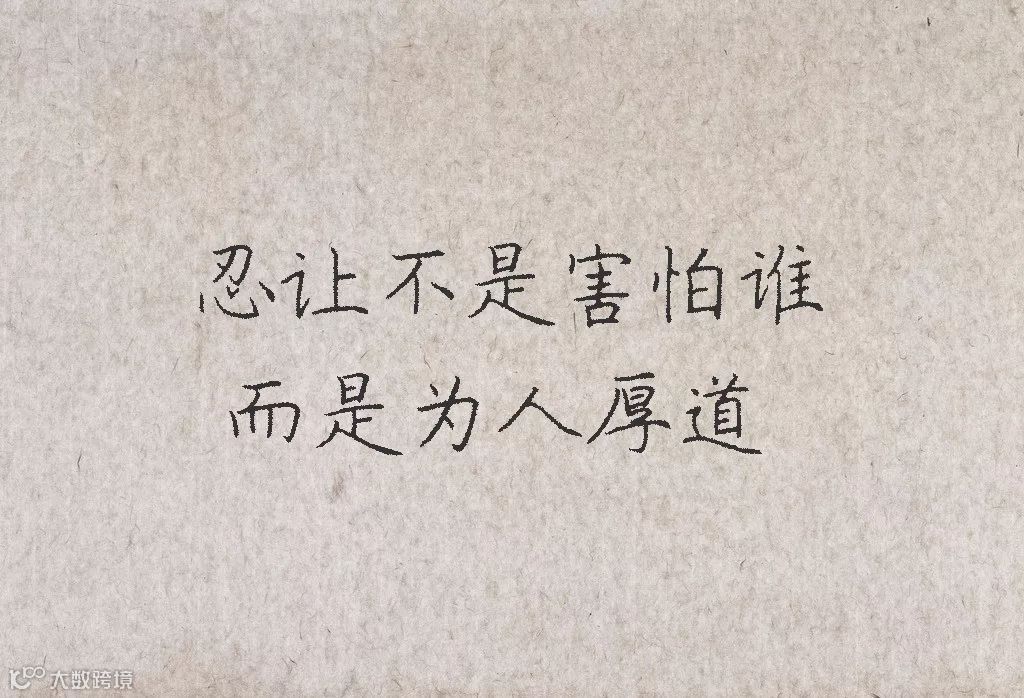 忍让不是害怕谁
而是为人厚道
大数跨境